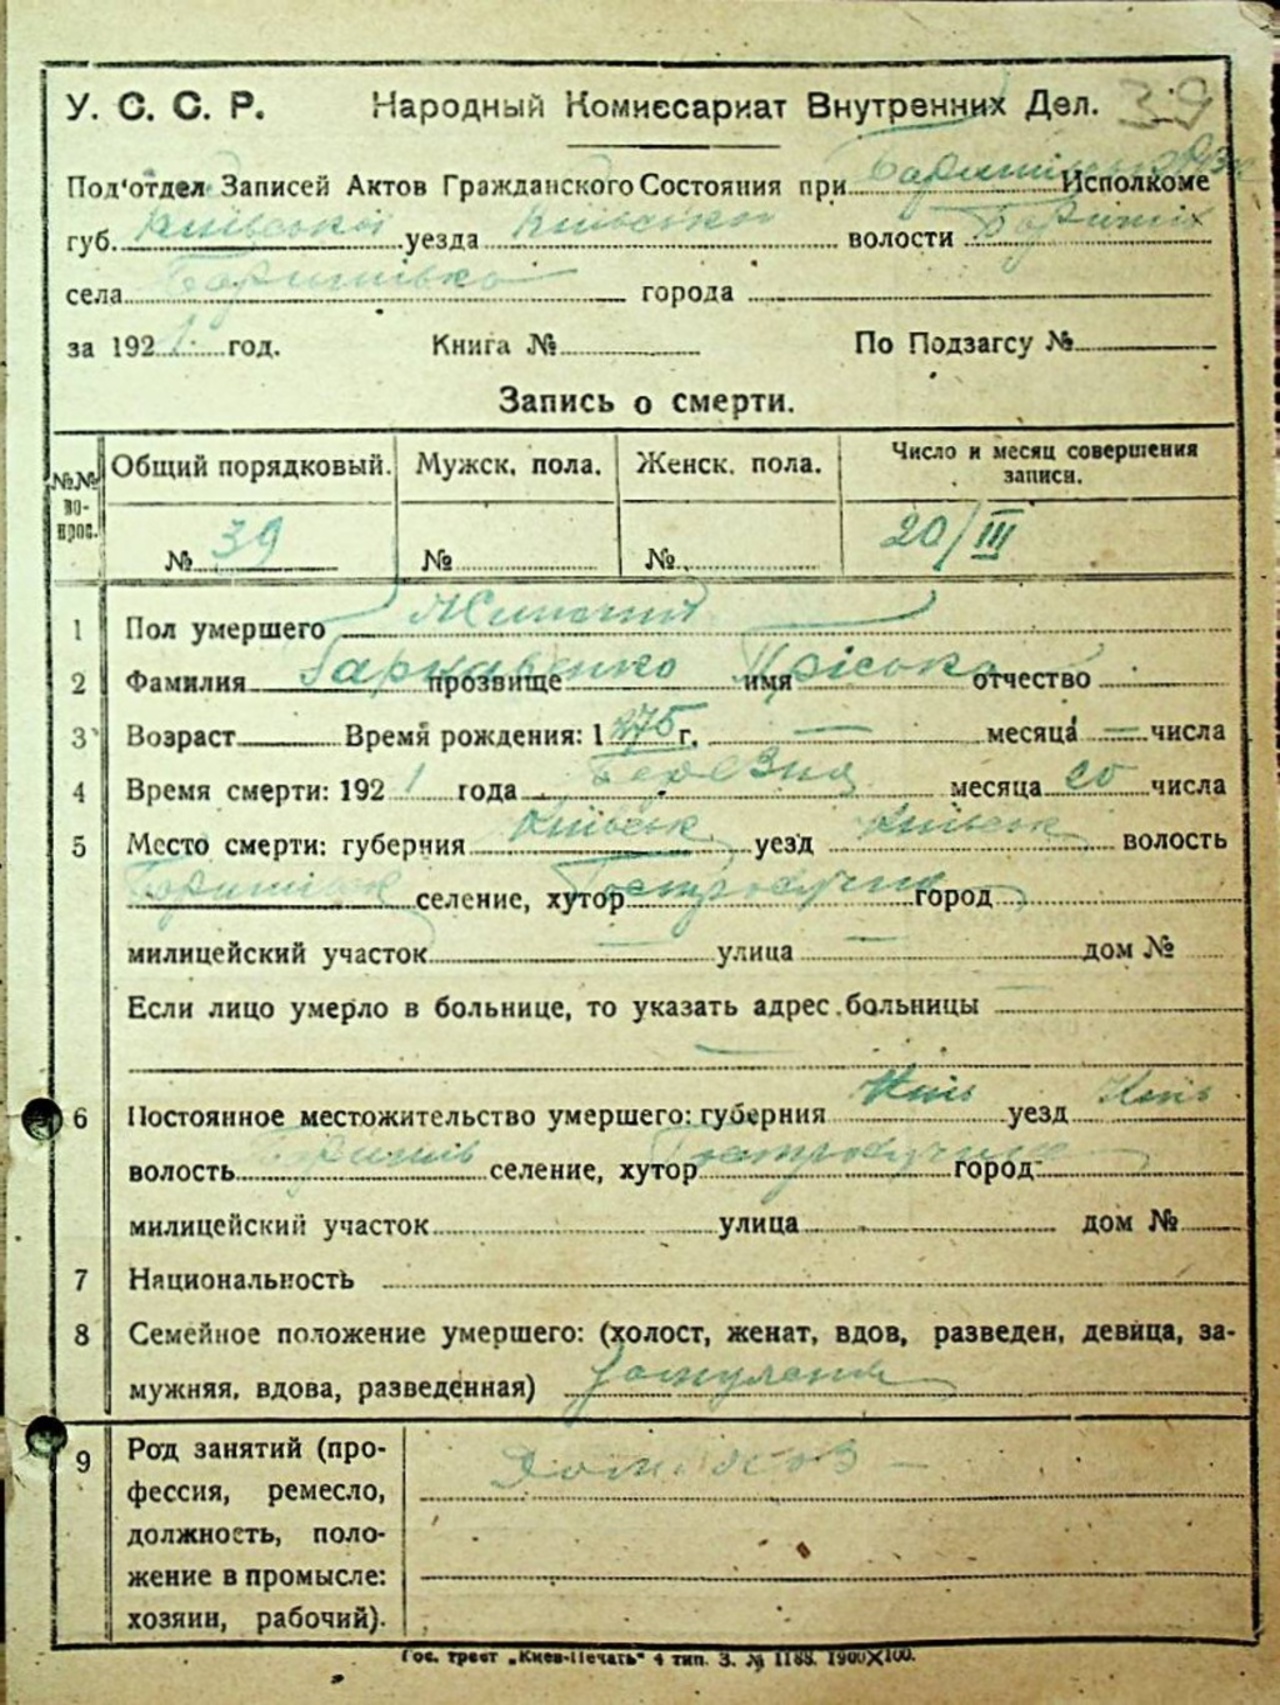 У. С. С. Р. Народный Комиссариат Внутренних Дел. 39
Под'отдел Записей Актов Гражданского Состояния при Исполкоме
губ. Київської уезда Київської волости Бориспіл
села Баришівка города
за 1921 год. Книга № По Подзагсу №
Запись о смерти.
№№ вопрос. Общий порядковый. Мужск. пола. Женск. пола. Число и месяц совершения записи.
№ 39 № № 20/III
1 Пол умершего Жіночий
2 Фамилия Гаркавенко прозвище имя Пріська отчество
3 Возраст Время рождения: 1875 г. — месяца — числа
4 Время смерти: 1921 года Березня месяца 20 числа
5 Место смерти: губерния Київськ уезд Київськ волость
Баришівськ селение, хутор Гостролуччя город
милицейский участок — улица — дом №
Если лицо умерло в больнице, то указать адрес больницы —
—
6 Постоянное местожительство умершего: губерния Київ уезд Київ
волость Баришів селение, хутор Гостролуччя город
милицейский участок улица дом №
7 Национальность
8 Семейное положение умершего: (холост, женат, вдов, разведен, девица, за-
мужняя, вдова, разведенная)
9 Род занятий (про-
фессия, ремесло,
должность, поло-
жение в промысле:
хозяин, рабочий).
Гос. трест „Киев-Печать" 4 тип. З. № 1188. 1900X100.